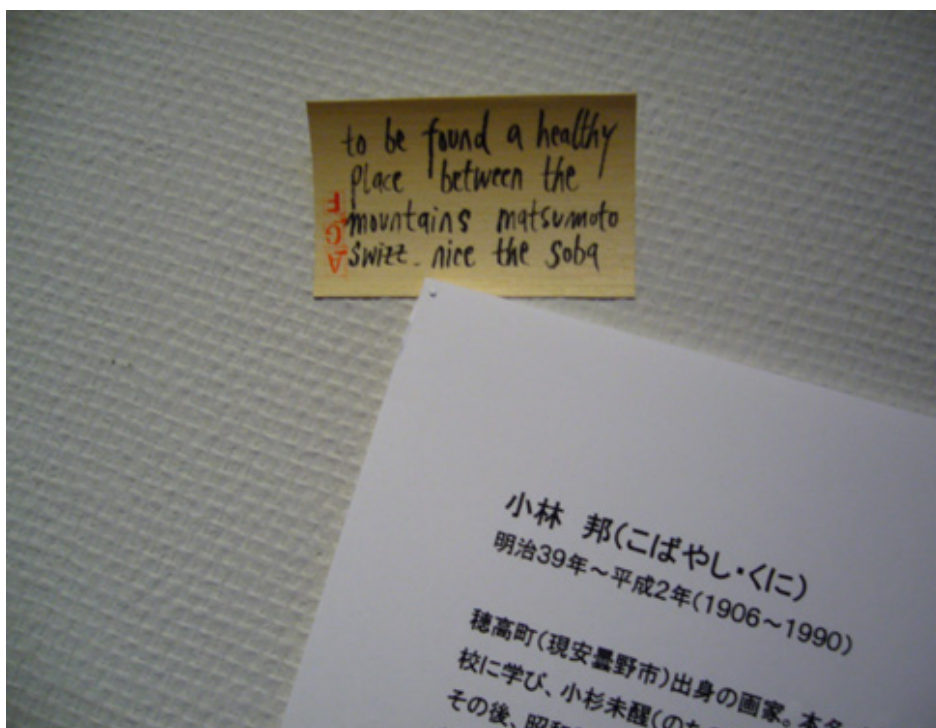 to be found a healthy
place between the
mountains matsumoto
swizz. nice the soba
FGA
小林 邦(こばやし・くに)
明治39年~平成2年(1906~1990)
穂高町(現安曇野市)出身の画家。本名
校に学び、小杉未醒(のち
その後、昭和